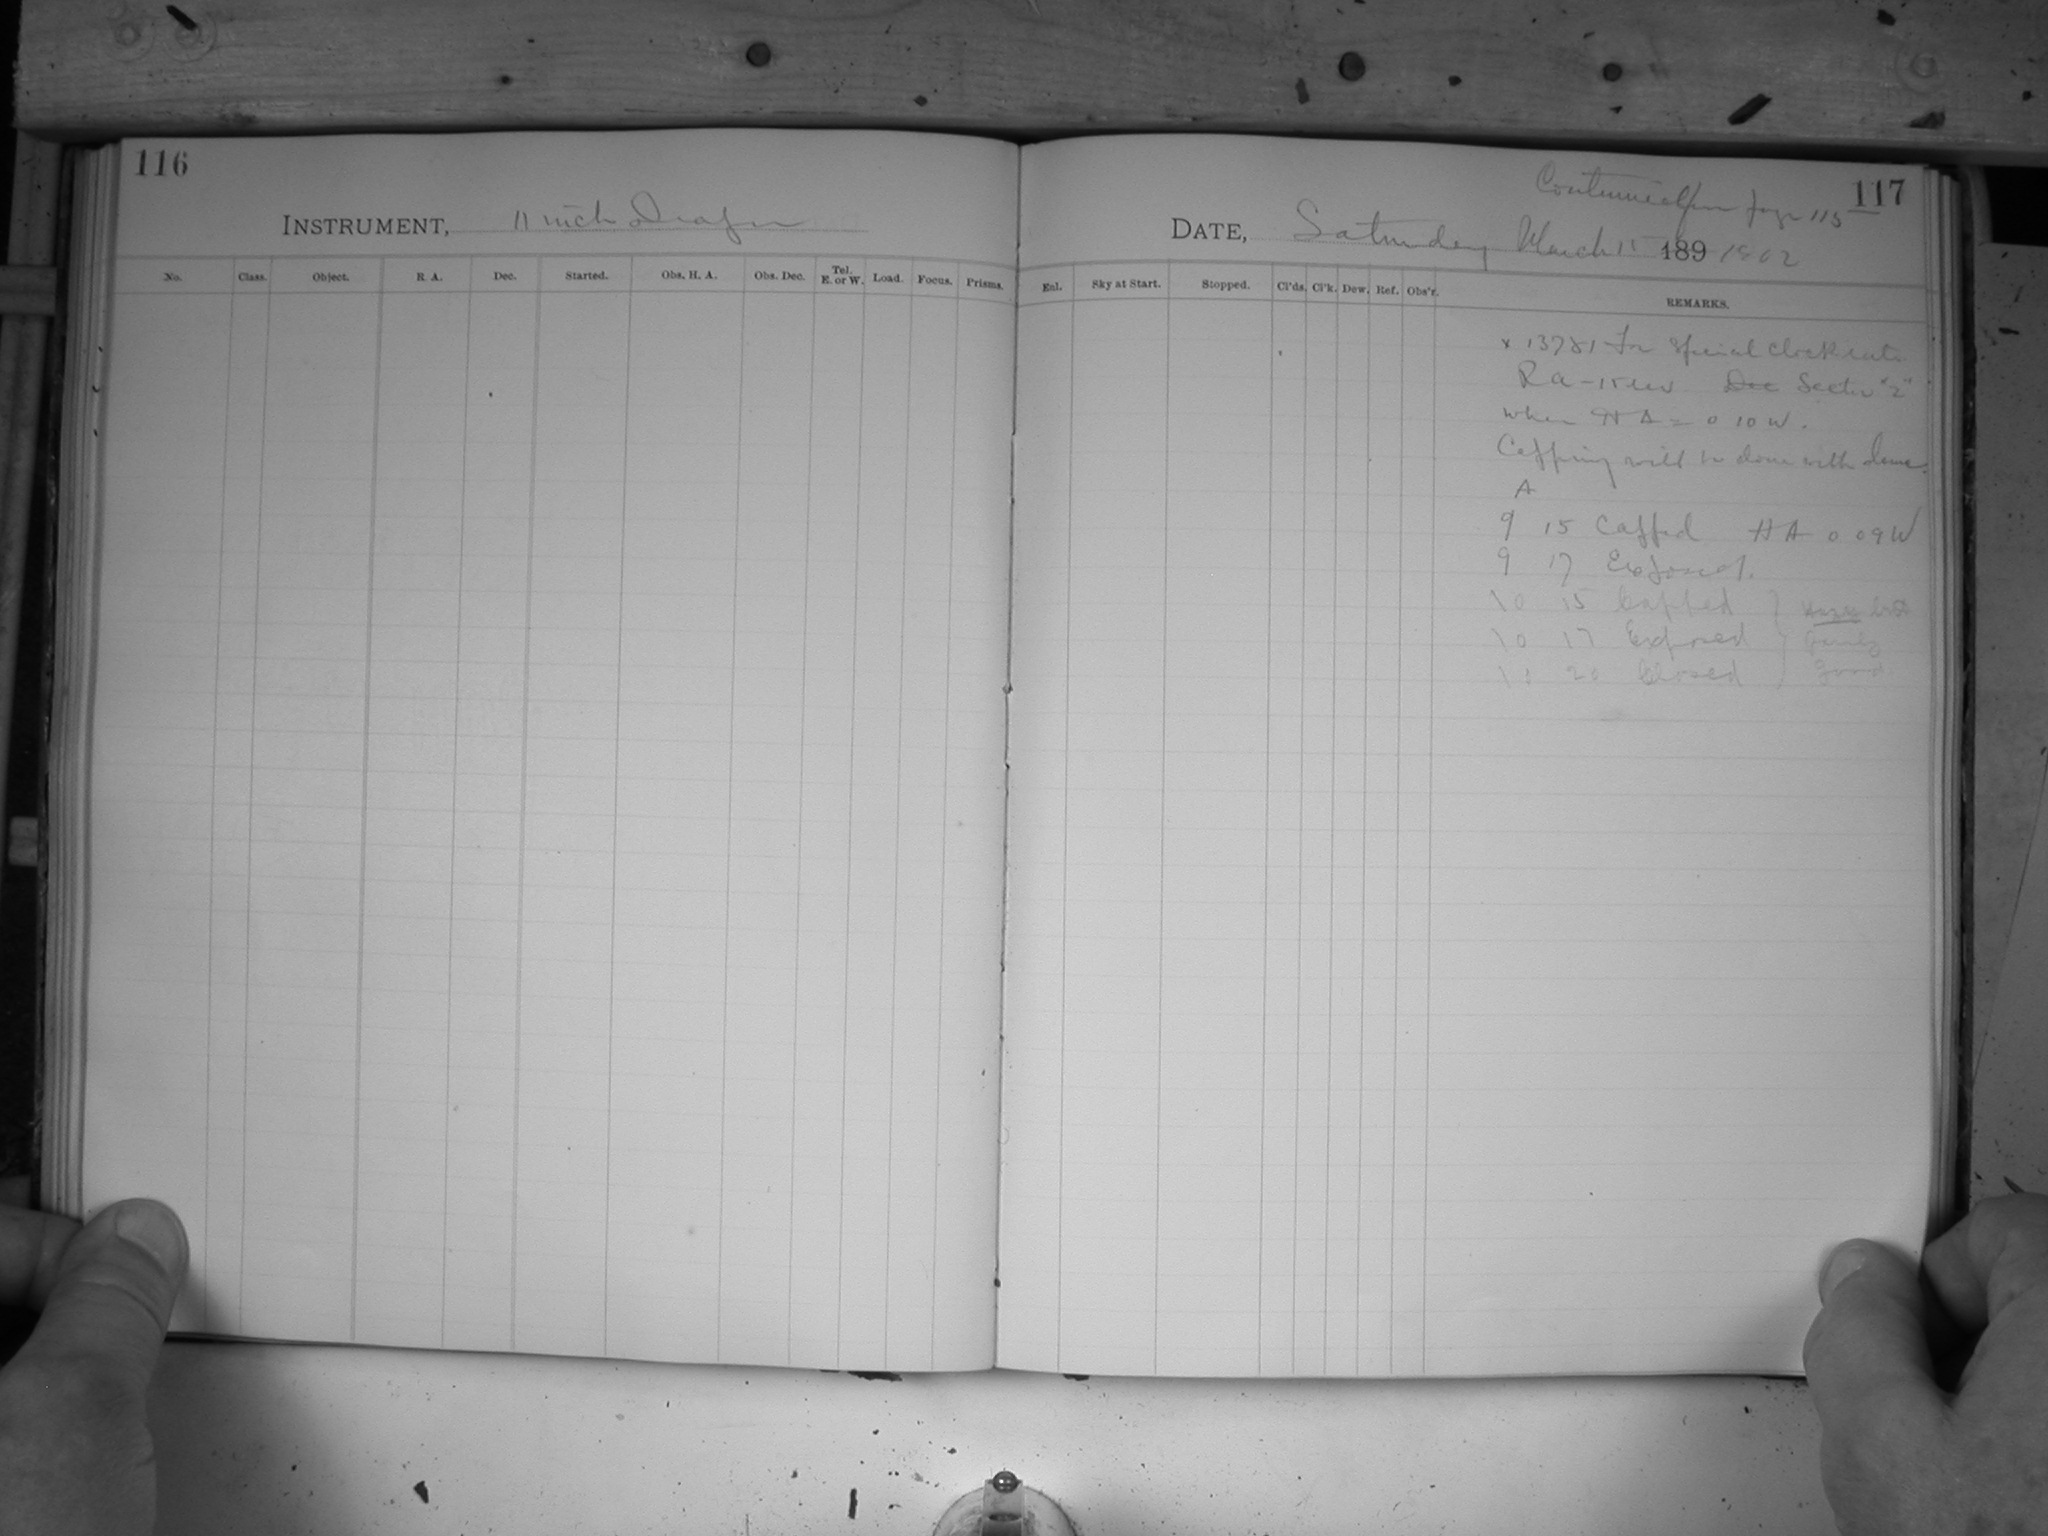 116
INSTRUMENT, 11 inch Draper
No. Class. Object. R. A. Dec. Started. Obs. H. A. Obs. Dec. Tel. E. or W. Load. Focus. Prisms.
117
Continued from page 115
DATE, Saturday March 15 189 1902
Enl. Sky at Start. Stopped. Cl'ds. Cl'k. Dew. Ref. Obs'r. REMARKS.
x 13781 for special clock rate
Ra - 15 Dec Sector "2"
when H A = 0 10 W.
Capping will be done with dome
A
9 15 Capped H A 0 09 W
9 17 Exposed.
10 15 Capped
10 17 Exposed
10 20 Closed Good